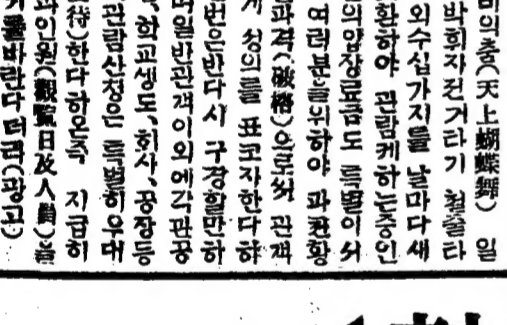 비의춤(天上蝴蝶舞) 일
박휘자전거타기 철술타
외수십가지를 날마다새
환하야 관람케하는중인
의압장료금도 특별이서
여러분을위하야 과천황
파격(破格)으로써 관객
게 성의를 표코자한다하
번은반다시 구경할만하
며일반관객이외에각관공
학교생도、회사、공장등
관람신청은 특별히우대
待)한다하온즉 지급히
과인원(觀覽日及人員)을
를바란다더라(광고)